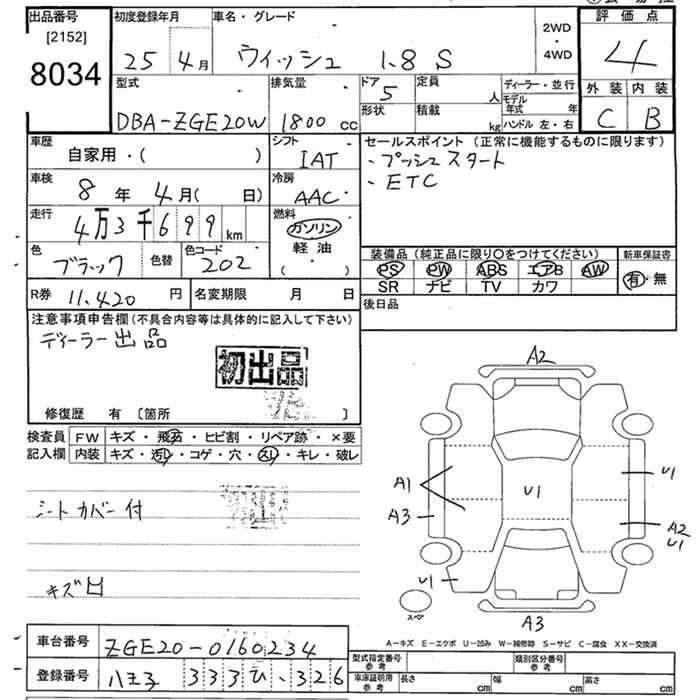 出品番号 [2152] 8034
初度登録年月 25 4月
車名・グレード ウィッシュ 1.8 S
2WD・4WD
評価点 4
外装 C 内装 B
型式 DBA-ZGE20W
排気量 1800 cc
ドア 5 形状
定員 人 積載 kg
ディーラー・並行
モデル年式 年
ハンドル 左・右
車歴 自家用・( )
シフト IAT
セールスポイント(正常に機能するものに限ります)
・プッシュスタート
・ETC
車検 8年 4月( 日)
冷房 AAC
走行 4万3千699km
燃料 ガソリン 軽油 ( )
色 ブラック 色替 色コード 202
装備品(純正品に限り〇をつけてください) 新車保証書
PS PW ABS エアB AW 有・無
SR ナビ TV カワ
R券 11,420円 名変期限 月 日
後日品
注意事項申告欄(不具合内容等は具体的に記入して下さい)
ディーラー出品
初出品
修復歴 有 [箇所 ]
検査員記入欄 FW キズ・飛石・ヒビ割・リペア跡・×要
内装 キズ・汚レ・コゲ・穴・スレ・キレ・破レ
シートカバー付
キズ凹
A2
A1
A3
U1
U1
A2
U1
U1
A3
スペア
A-キズ E-エクボ U-凹み W-補修跡 S-サビ C-腐食 XX-交換済
車台番号 ZGE20-0160234
登録番号 八王子 333 ひ ・326
型式指定番号 参考 類別区分番号 参考
車庫証明用 参考 長さ cm 幅 cm 高さ cm